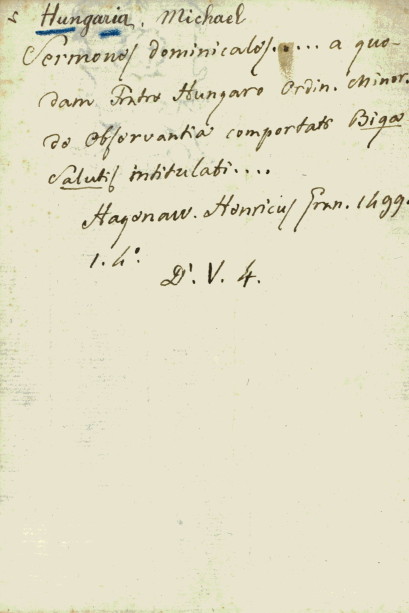 Hungaria, Michael
Sermones dominicales..... a quo-
dam Fratre Hungaro Ordin. Minor.
de Observantia comportati Biga
Salutis intitulati....
Hagenaw. Henricus Gran. 1499.
1. 4°.
D'. V. 4.